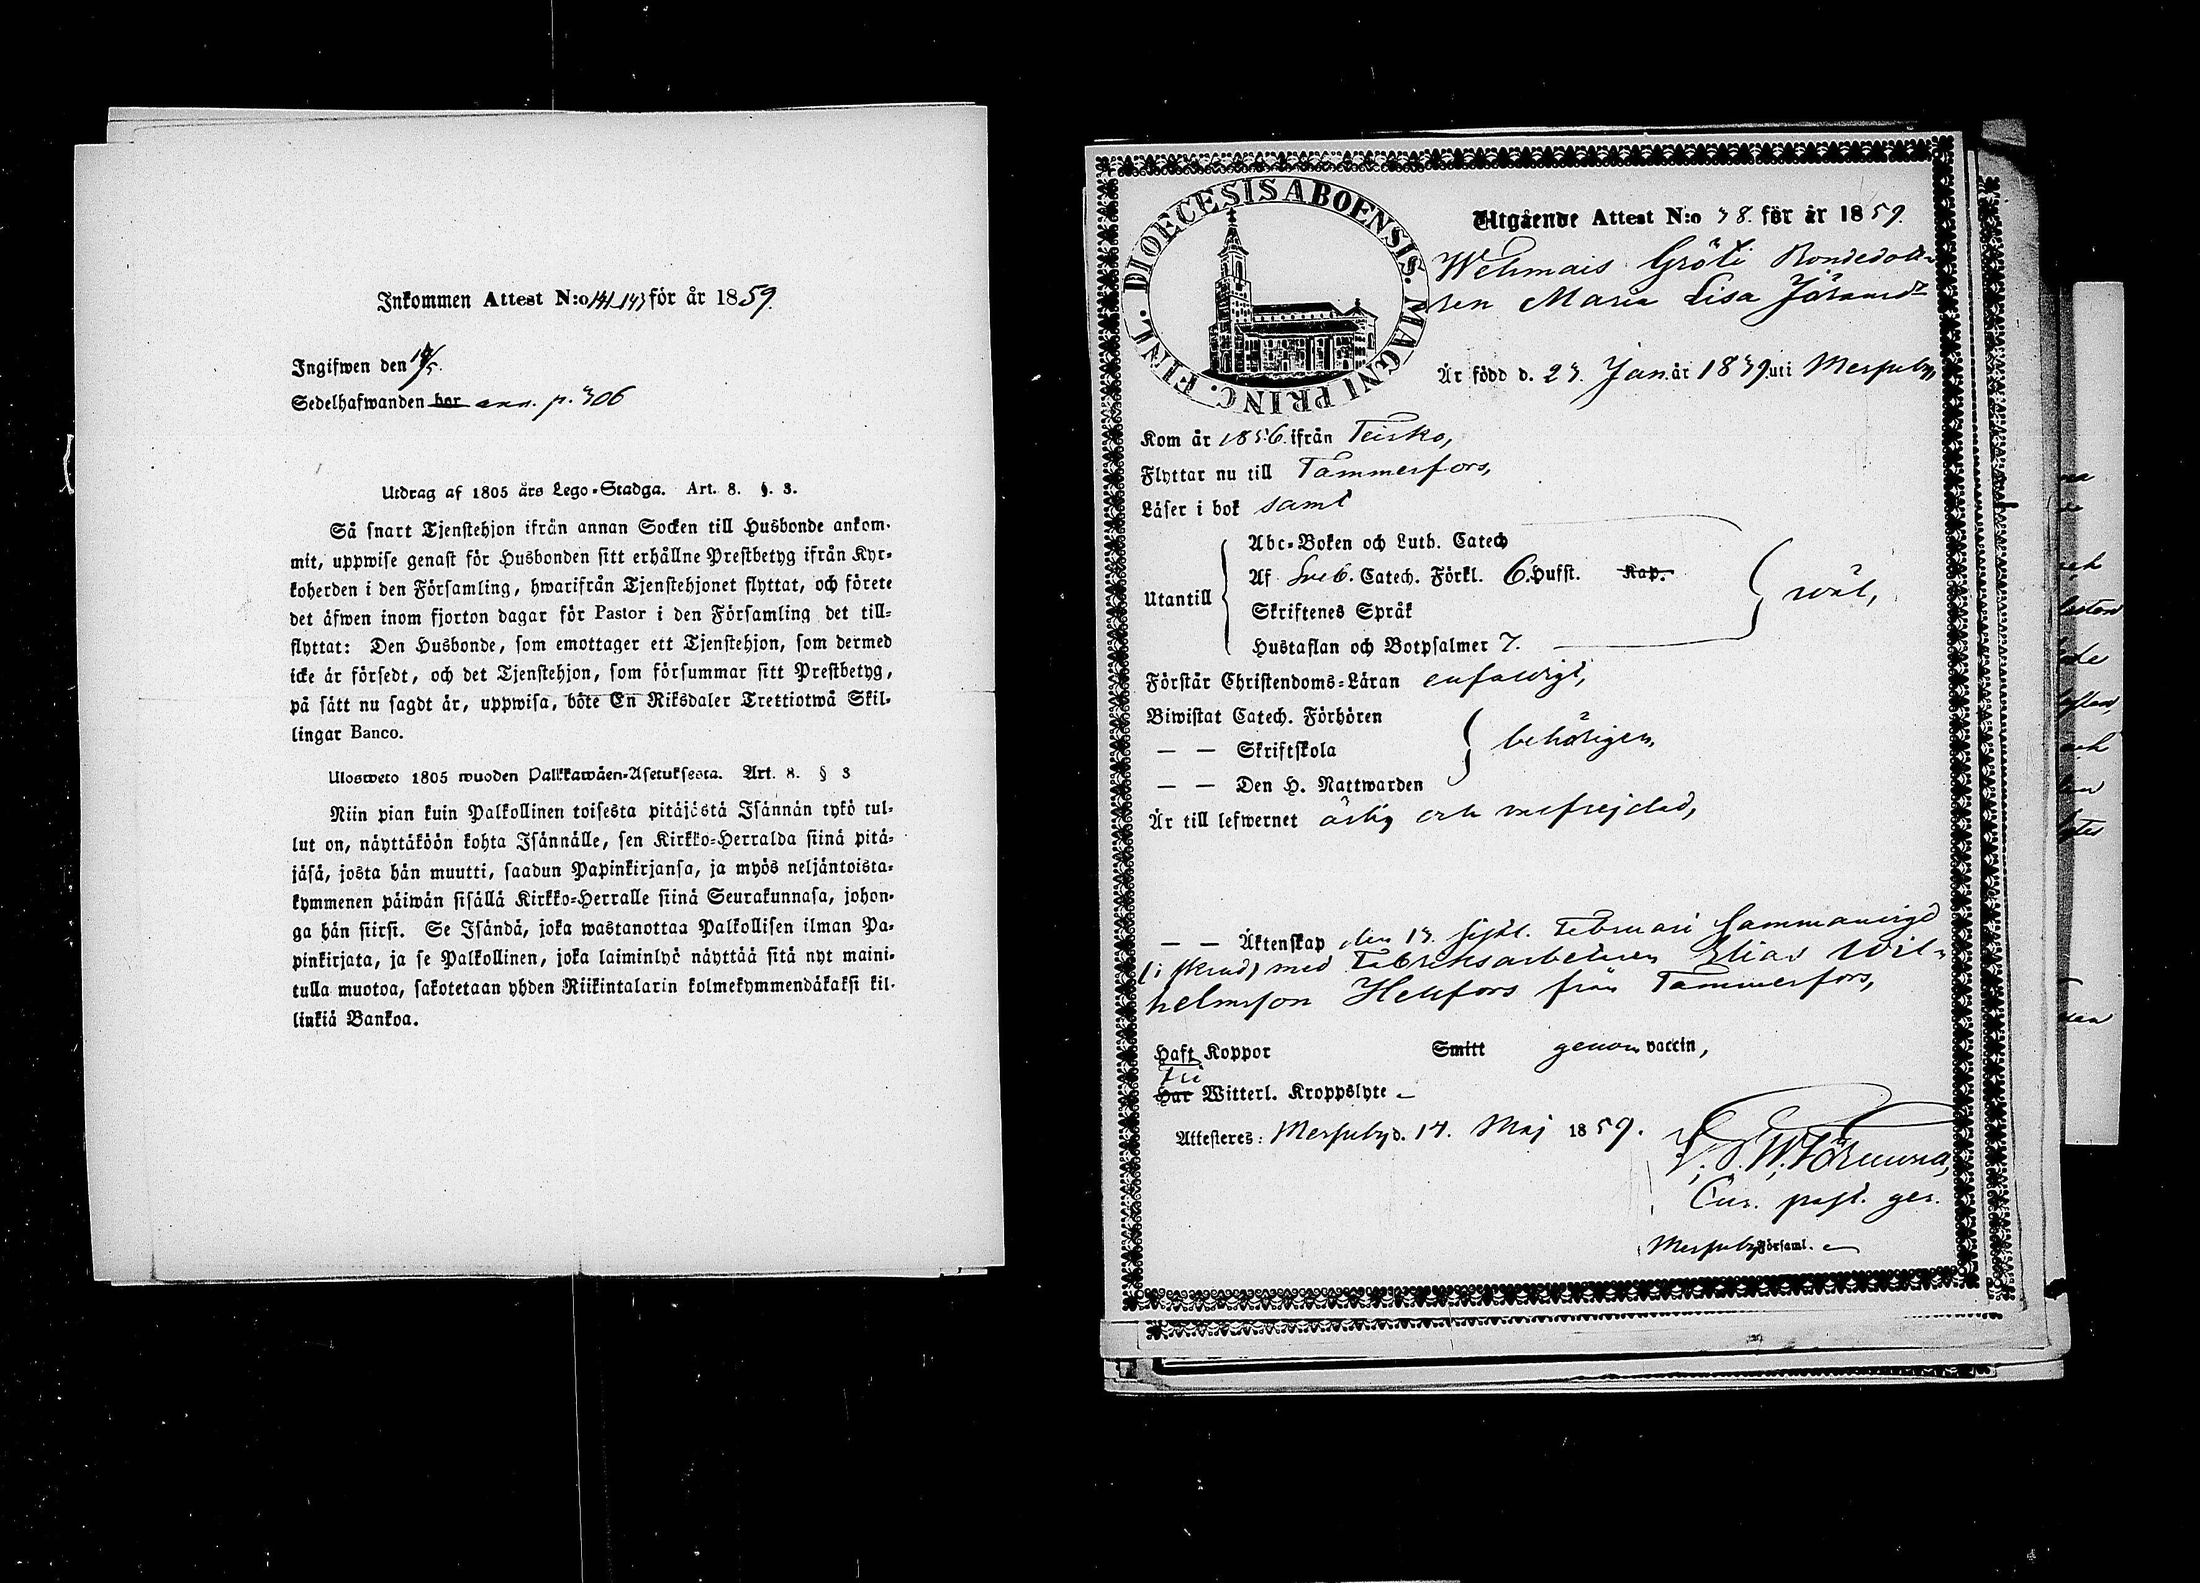 Inkommen Attest N:o 141_143 för år 1859.
Ingifwen den 19/5.
Sedelhafwanden bor ann. p. 306
Utdrag af 1805 års Lego-Stadga. Art. 8. §. 3.
Så snart Tjenstehjon ifrån annan Socken till Husbonde ankom-
mit, uppwise genast för Husbonden sitt erhållne Prestbetyg ifrån Kyr-
koherden i den Församling, hwarifrån Tjenstehjonet flyttat, och förete
det äfwen inom fjorton dagar för Pastor i den Församling det till-
flyttat: Den Husbonde, som emottager ett Tjenstehjon, som dermed
icke är försedt, och det Tjenstehjon, som försummar sitt Prestbetyg,
på sätt nu sagdt är, uppwisa, böte En Riksdaler Trettiotwå Skil-
lingar Banco.
Ulosweto 1805 wuoden Palkkawäen-Asetuksesta. Art. 8. § 3
Niin pian kuin Palkollinen toisesta pitäjästä Isännän tykö tul-
lut on, näyttäköön kohta Isännälle, sen Kirkko-Herralda siinä pitä-
jäsä, josta hän muutti, saadun Papinkirjansa, ja myös neljäntoista-
kymmenen päiwän sisällä Kirkko-Herralle siinä Seurakunnasa, johon-
ga hän siirsi. Se Isändä, joka wastanottaa Palkollisen ilman Pa-
pinkirjata, ja se Palkollinen, joka laiminlyö näyttää sitä nyt maini-
tulla muotoa, sakotetaan yhden Riikintalarin kolmekymmendäkaksi kil-
linkiä Bankoa.
DIOECESIS ABOENSIS. MAGNI PRINC. FINL.
Utgående Attest N:o 38. för år 1859.
Wehmais Gröti Bondedott-
ren Maria Lisa Jöransdr
Är född d. 23. Jan. år 1839. uti Messuby,
Kom år 1856. ifrån Teisko,
Flyttar nu till Tammerfors,
Läser i bok samt
Utantill
Abc-Boken och Luth. Catech
Af Sveb. Catech. Förkl. 6. Hufst. Kap.
Skriftenes Språk
Hustaflan och Botpsalmer 7.
wäl,
Förstår Christendoms-Läran enfaldigt,
Biwistat Catech. Förhören
— — Skriftskola
— — Den H. Nattwarden
behörigen,
Är till lefwernet ärlig och välfrejdad,
— — Äktenskap den 13. sistl. Februari Sammanvigd
med Fabriksarbetaren Elias Wil-
helmsson Hellfors från Tammerfors,
Haft Koppor Smitt genom vaccin,
Har Witterl. Kroppslyte
Attesteres: Messuby d. 14. Maj 1859.
Cur. past. ger.
Messuby Församl.